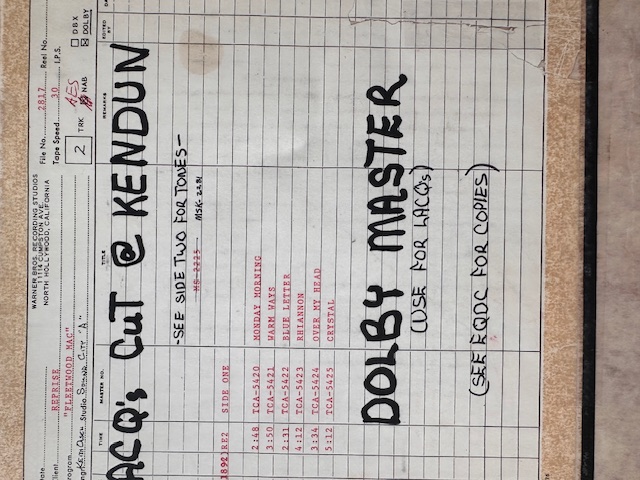 WARNER BROS. RECORDING STUDIOS
11114 CUMPSTON AVE.
NORTH HOLLYWOOD, CALIFORNIA
File No. 2817 Reel No.
Tape Speed 30 I.P.S.
2 TRK AES NAB
DBX
DOLBY
ate
lient REPRISE
rogram "FLEETWOOD MAC"
Studio SOUND CITY "A"
TIME MASTER NO. TITLE REMARKS EDITED BY
ACQ's CUT @ KENDUN
-SEE SIDE TWO FOR TONES-
MS-2225 MSK-2281
RE2 SIDE ONE
2:48 TCA-5420 MONDAY MORNING
3:50 TCA-5421 WARM WAYS
2:31 TCA-5422 BLUE LETTER
4:12 TCA-5423 RHIANNON
3:34 TCA-5424 OVER MY HEAD
5:12 TCA-5425 CRYSTAL
DOLBY MASTER
(USE FOR LACQ's)
(SEE EQDC FOR COPIES)